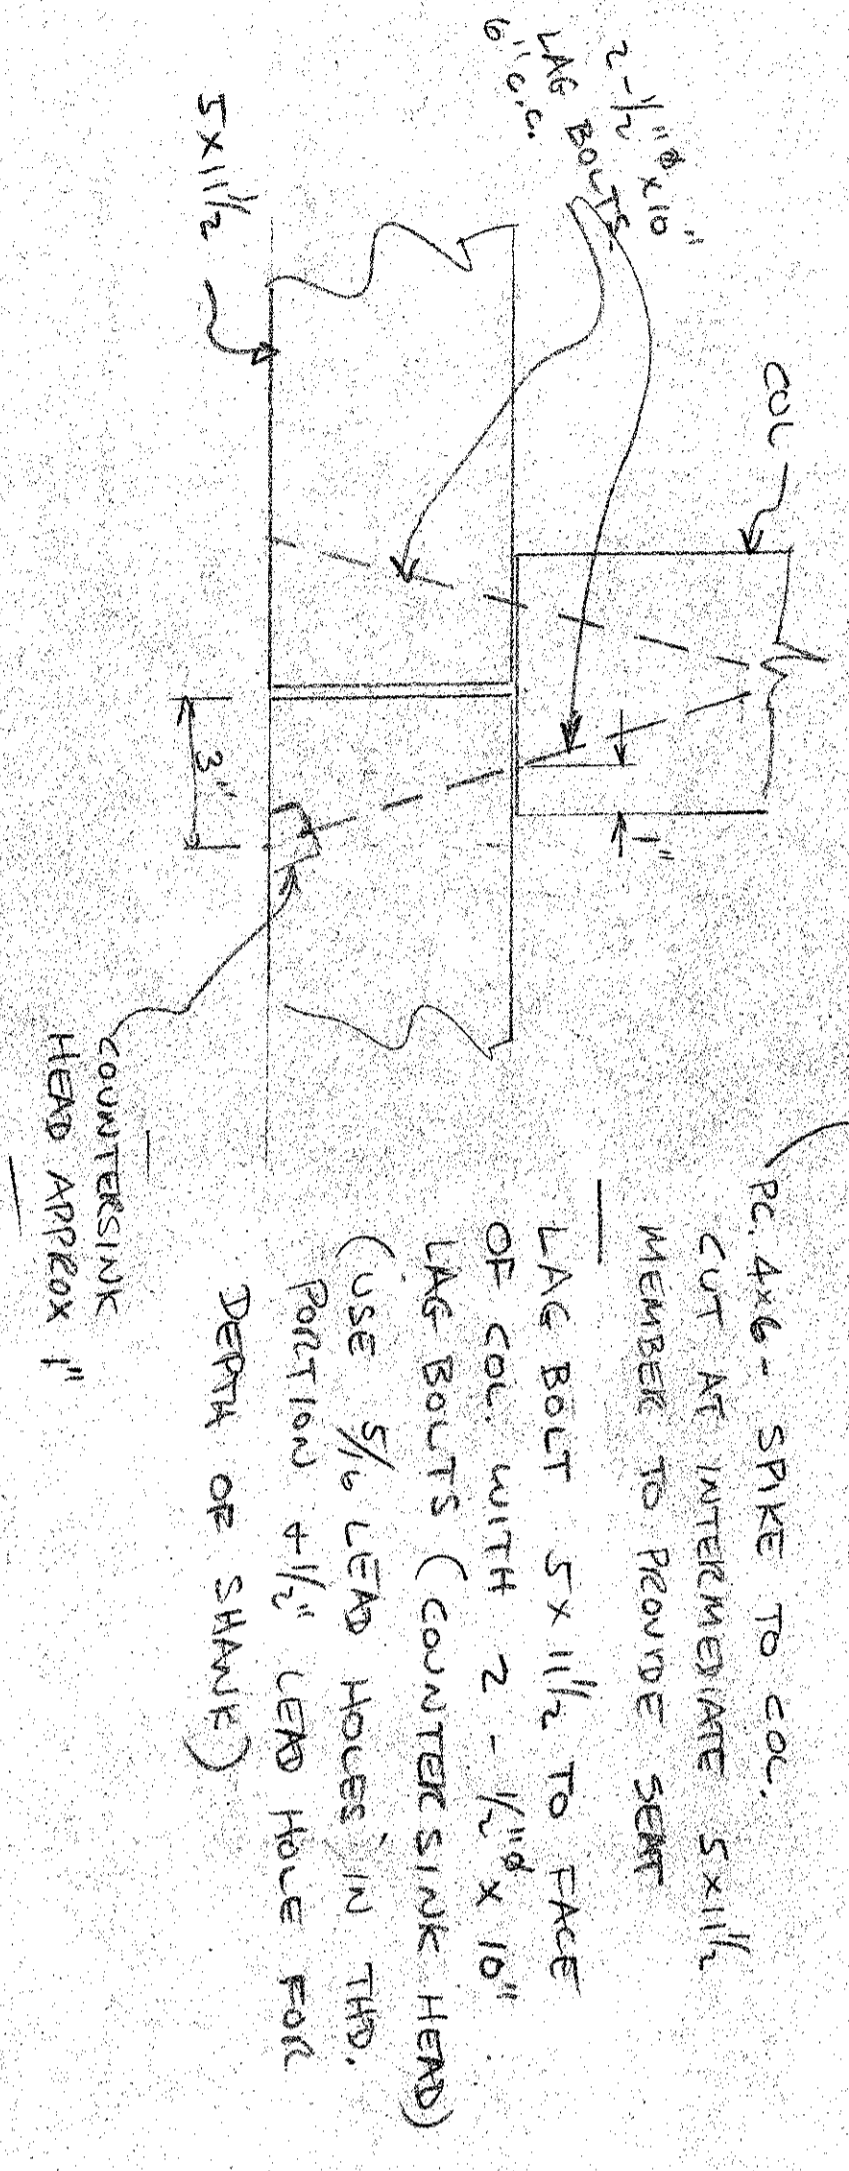 2-1/2"ø x 10"
LAG BOLTS
6" O.C.
COL
5 x 11 1/2
3"
1"
COUNTERSINK
HEAD APPROX 1"
PC. 4x6 - SPIKE TO COL.
CUT AT INTERMEDIATE 5x11 1/2
MEMBER TO PROVIDE SEAT
LAG BOLT 5 x 11 1/2 TO FACE
OF COL. WITH 2 - 1/2"ø x 10"
LAG BOLTS (COUNTERSINK HEAD)
(USE 5/16 LEAD HOLES IN THD.
PORTION + 1/2" LEAD HOLE FOR
DEPTH OF SHANK)